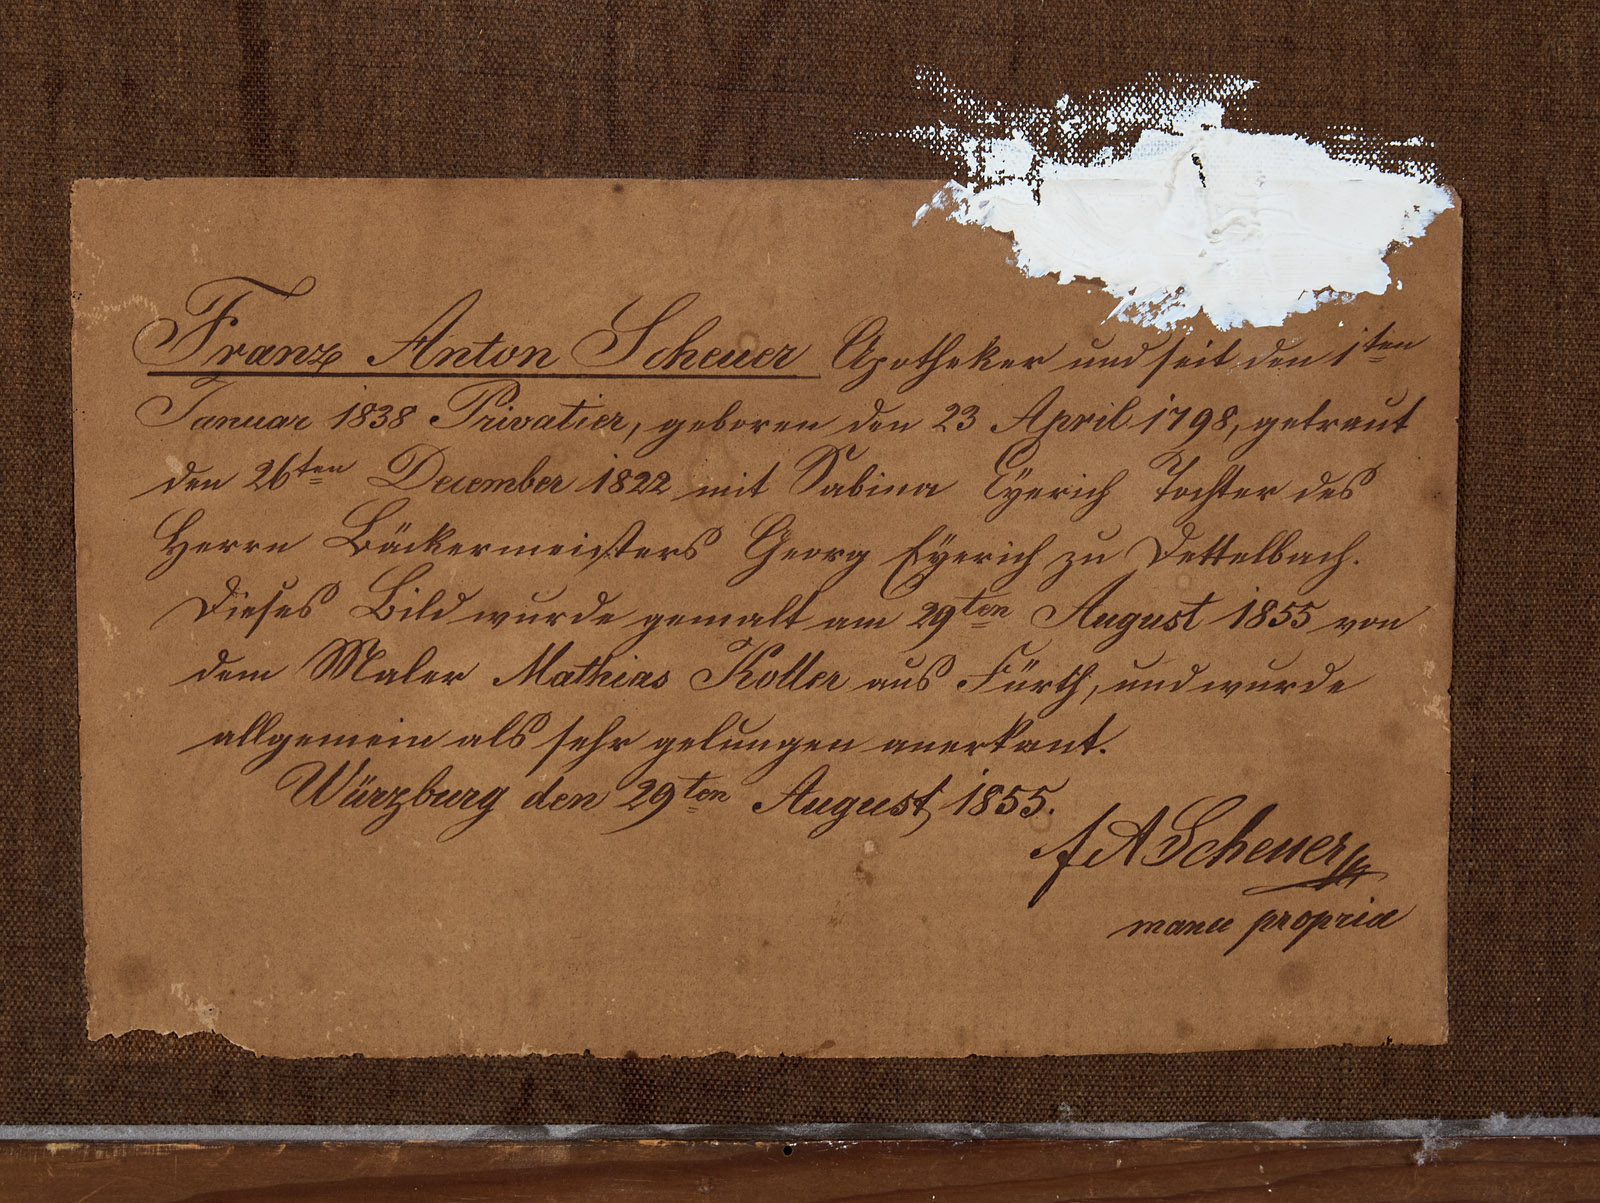 Franz Anton Scheuer Apotheker und seit den 1ten
Januar 1838 Privatier, geboren den 23 April 1798, getraut
den 26ten December 1822 mit Sabina Eyerich Tochter des
Herrn Bäckermeisters Georg Eyerich zu Dettelbach.
Dieses Bild wurde gemalt am 29ten August 1855 von
dem Maler Mathias Kotter aus Fürth, und wurde
allgemein als sehr gelungen anerkant.
Würzburg den 29ten August 1855.
f A Scheuer
manu propria